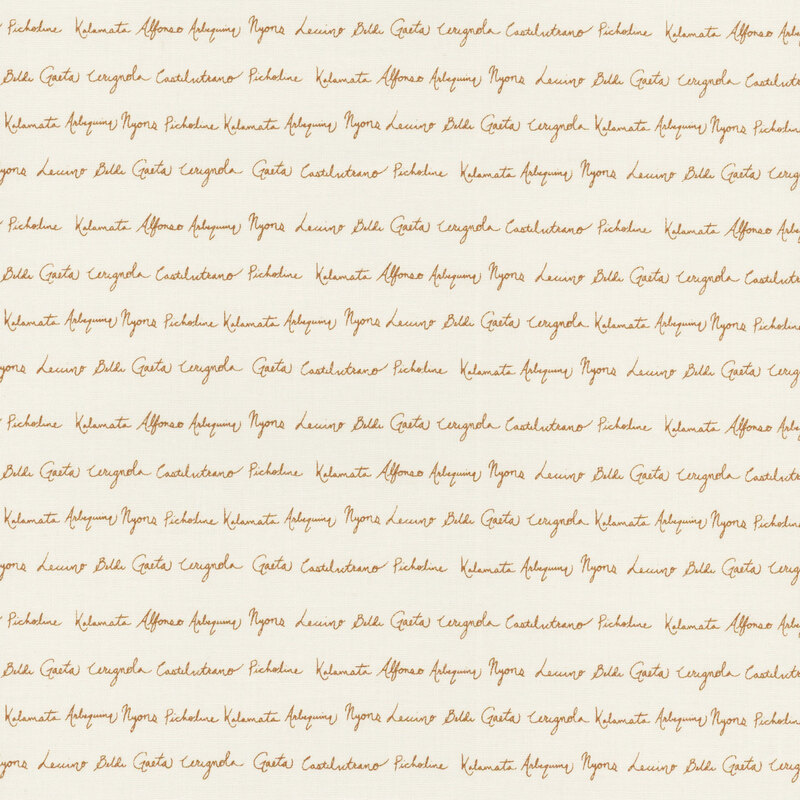 Picholine Kalamata Alfonso Arbequina Nyons Leccino Beldi Gaeta Cerignola Castelvetrano Picholine Kalamata Alfonso Arb
Beldi Gaeta Cerignola Castelvetrano Picholine Kalamata Alfonso Arbequina Nyons Leccino Beldi Gaeta Cerignola Castelvetr
Kalamata Arbequina Nyons Picholine Kalamata Arbequina Nyons Leccino Beldi Gaeta Cerignola Kalamata Arbequina Nyons Picholin
yons Leccino Beldi Gaeta Cerignola Gaeta Castelvetrano Picholine Kalamata Arbequina Nyons Leccino Beldi Gaeta Cerig
Picholine Kalamata Alfonso Arbequina Nyons Leccino Beldi Gaeta Cerignola Castelvetrano Picholine Kalamata Alfonso Arb
Beldi Gaeta Cerignola Castelvetrano Picholine Kalamata Alfonso Arbequina Nyons Leccino Beldi Gaeta Cerignola Castelvetr
Kalamata Arbequina Nyons Picholine Kalamata Arbequina Nyons Leccino Beldi Gaeta Cerignola Kalamata Arbequina Nyons Picholin
yons Leccino Beldi Gaeta Cerignola Gaeta Castelvetrano Picholine Kalamata Arbequina Nyons Leccino Beldi Gaeta Cerig
Picholine Kalamata Alfonso Arbequina Nyons Leccino Beldi Gaeta Cerignola Castelvetrano Picholine Kalamata Alfonso Arb
Beldi Gaeta Cerignola Castelvetrano Picholine Kalamata Alfonso Arbequina Nyons Leccino Beldi Gaeta Cerignola Castelvetr
Kalamata Arbequina Nyons Picholine Kalamata Arbequina Nyons Leccino Beldi Gaeta Cerignola Kalamata Arbequina Nyons Picholin
yons Leccino Beldi Gaeta Cerignola Gaeta Castelvetrano Picholine Kalamata Arbequina Nyons Leccino Beldi Gaeta Cerig
Picholine Kalamata Alfonso Arbequina Nyons Leccino Beldi Gaeta Cerignola Castelvetrano Picholine Kalamata Alfonso Arb
Beldi Gaeta Cerignola Castelvetrano Picholine Kalamata Alfonso Arbequina Nyons Leccino Beldi Gaeta Cerignola Castelvetr
Kalamata Arbequina Nyons Picholine Kalamata Arbequina Nyons Leccino Beldi Gaeta Cerignola Kalamata Arbequina Nyons Picholin
yons Leccino Beldi Gaeta Cerignola Gaeta Castelvetrano Picholine Kalamata Arbequina Nyons Leccino Beldi Gaeta Cerig